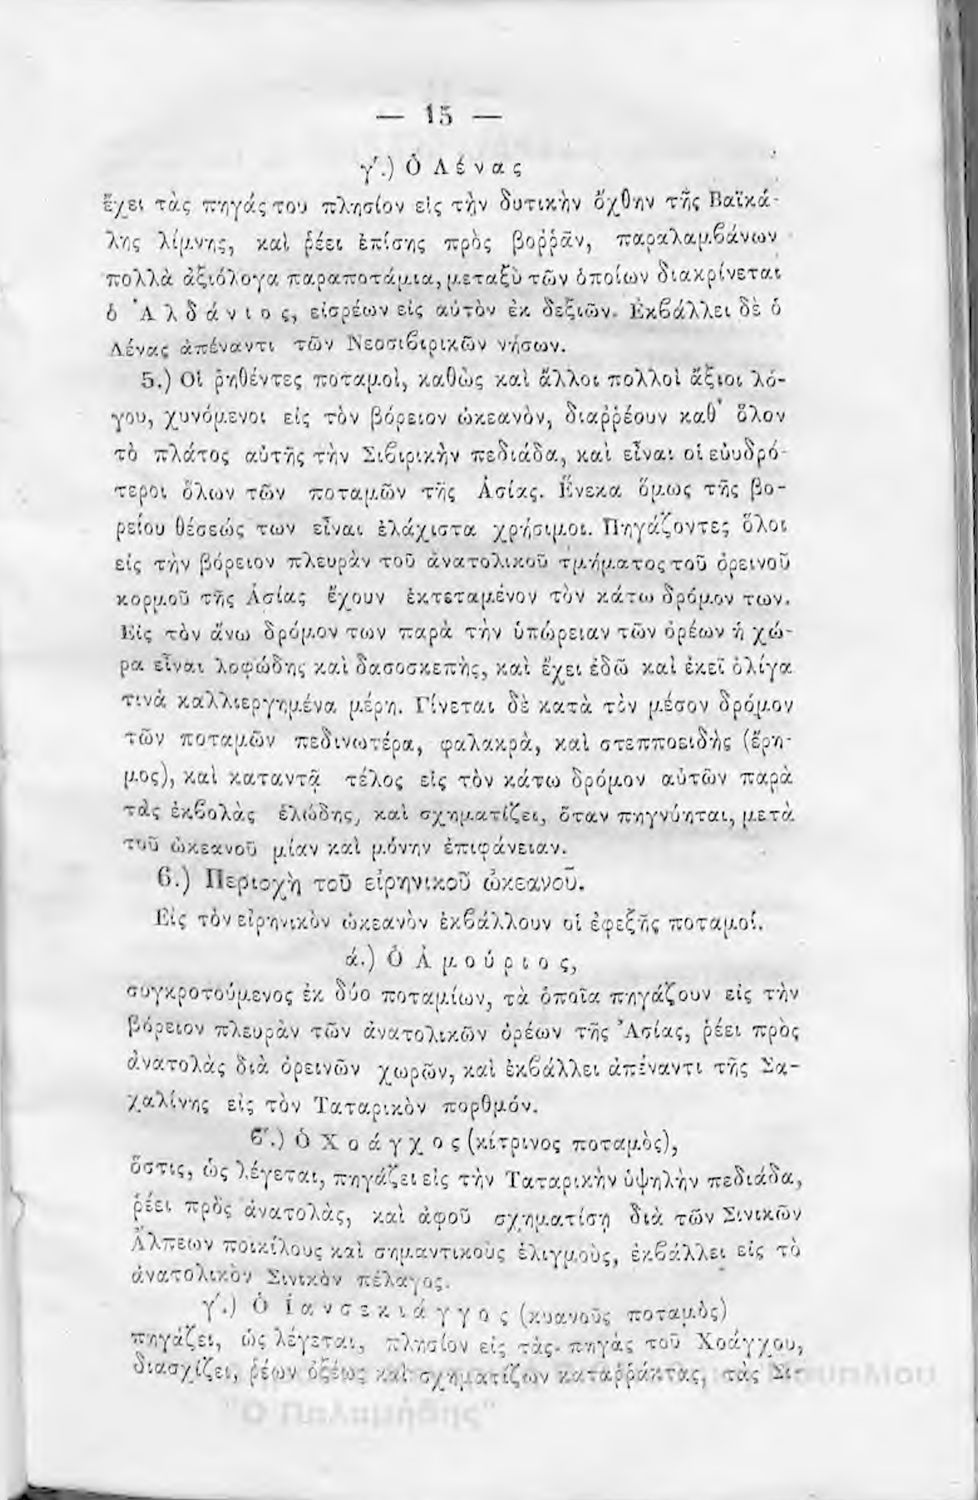 — 15 —
γ´.) Ὁ Λένας
ἔχει τὰς πηγάς του πλησίον εἰς τὴν δυτικὴν ὄχθην τῆς Βαϊκά-
λης λίμνης, καὶ ῥέει ἐπίσης πρὸς βοῤῥᾶν, παραλαμβάνων
πολλὰ ἀξιόλογα παραποτάμια, μεταξὺ τῶν ὁποίων διακρίνεται
ὁ Ἀλδάνιος, εἰσρέων εἰς αὐτὸν ἐκ δεξιῶν. Ἐκβάλλει δὲ ὁ
Λένας ἀπέναντι τῶν Νεοσιβιρικῶν νήσων.
5.) Οἱ ῥηθέντες ποταμοὶ, καθὼς καὶ ἄλλοι πολλοὶ ἄξιοι λό-
γου, χυνόμενοι εἰς τὸν βόρειον ὠκεανὸν, διαῤῥέουν καθ᾽ ὅλον
τὸ πλάτος αὐτῆς τὴν Σιβιρικὴν πεδιάδα, καὶ εἶναι οἱ εὐυδρό-
τεροι ὅλων τῶν ποταμῶν τῆς Ἀσίας. Ἕνεκα ὅμως τῆς βο-
ρείου θέσεώς των εἶναι ἐλάχιστα χρήσιμοι. Πηγάζοντες ὅλοι
εἰς τὴν βόρειον πλευρὰν τοῦ ἀνατολικοῦ τμήματος τοῦ ὀρεινοῦ
κορμοῦ τῆς Ἀσίας ἔχουν ἐκτεταμένον τὸν κάτω δρόμον των.
Εἰς τὸν ἄνω δρόμον των παρὰ τὴν ὑπώρειαν τῶν ὀρέων ἡ χώ-
ρα εἶναι λοφώδης καὶ δασοσκεπὴς, καὶ ἔχει ἐδῶ καὶ ἐκεῖ ὀλίγα
τινὰ καλλιεργημένα μέρη. Γίνεται δὲ κατὰ τὸν μέσον δρόμον
τῶν ποταμῶν πεδινωτέρα, φαλακρὰ, καὶ στεπποειδὴς (ἔρη-
μος), καὶ καταντᾷ τέλος εἰς τὸν κάτω δρόμον αὐτῶν παρὰ
τὰς ἐκβολὰς ἑλώδης, καὶ σχηματίζει, ὅταν πηγνύηται, μετὰ
τοῦ ὠκεανοῦ μίαν καὶ μόνην ἐπιφάνειαν.
6.) Περιοχὴ τοῦ εἰρηνικοῦ ὠκεανοῦ.
Εἰς τὸν εἰρηνικὸν ὠκεανὸν ἐκβάλλουν οἱ ἐφεξῆς ποταμοί.
ά.) Ὁ Ἀμούριος,
συγκροτούμενος ἐκ δύο ποταμίων, τὰ ὁποῖα πηγάζουν εἰς τὴν
βόρειον πλευρὰν τῶν ἀνατολικῶν ὀρέων τῆς Ἀσίας, ῥέει πρὸς
ἀνατολὰς διὰ ὀρεινῶν χωρῶν, καὶ ἐκβάλλει ἀπέναντι τῆς Σα-
χαλίνης εἰς τὸν Ταταρικὸν πορθμόν.
β´.) Ὁ Χοάγχος (κίτρινος ποταμὸς),
ὅστις, ὡς λέγεται, πηγάζει εἰς τὴν Ταταρικὴν ὑψηλὴν πεδιάδα,
ῥέει πρὸς ἀνατολὰς, καὶ ἀφοῦ σχηματίσῃ διὰ τῶν Σινικῶν
Ἄλπεων ποικίλους καὶ σημαντικοὺς ἑλιγμοὺς, ἐκβάλλει εἰς τὸ
ἀνατολικὸν Σινικὸν πέλαγος.
γ´.) Ὁ Ἰανσεκιάγγος (κυανοῦς ποταμὸς)
πηγάζει, ὡς λέγεται, πλησίον εἰς τὰς πηγὰς τοῦ Χοάγχου,
διασχίζει, ῥέων ὀξέως καὶ σχηματίζων καταῤῥάκτας, τὰς Σι-
"Ο Παλαμήδης"